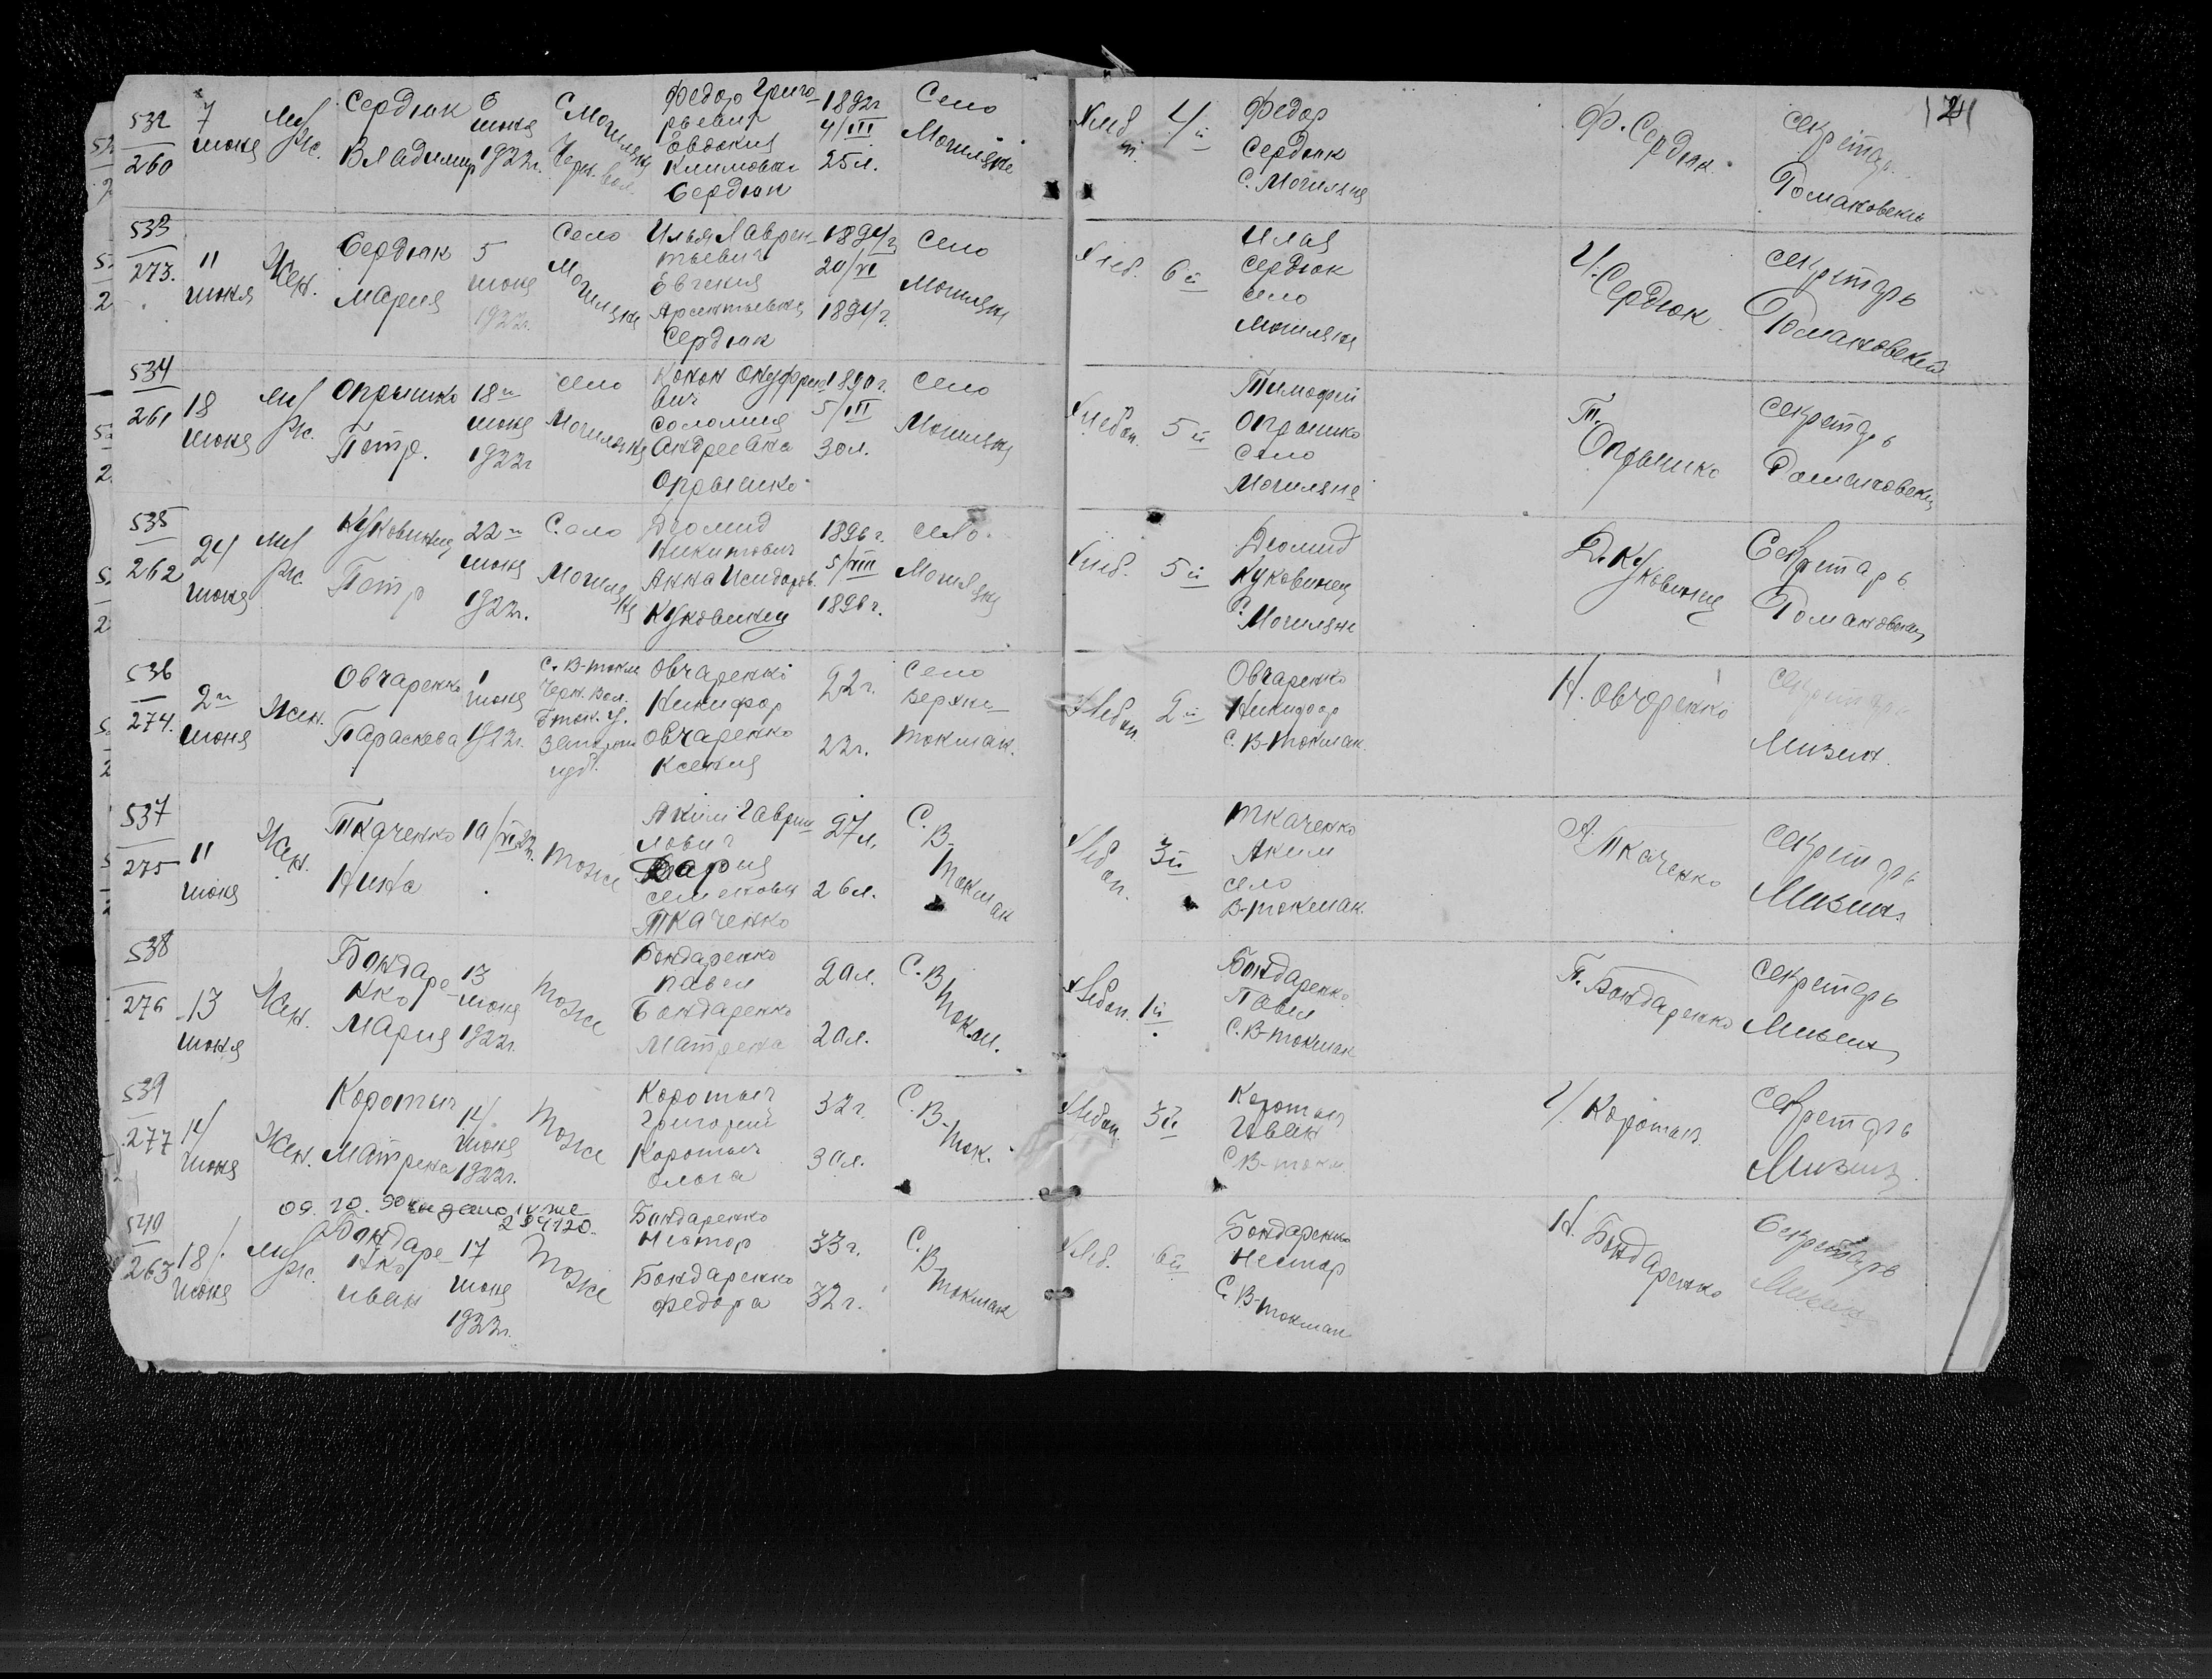 532
260
7
июня
Муж.
Сердюк
Владимир
6
июня
1922г.
С. Могиляны
Черн. вол.
Федор Григо-
рьевич
Евдокия
Климовна
Сердюк
1892г
4/III
25л.
Село
Могиляны
Хлеб
4й
Федор
Сердюк
С. Могиляны
Ф. Сердюк.
секретарь
533
273.
11
июня
Жен.
Сердюк
Мария
5
июня
1922г.
Село
Могиляны
Илья Лаврен-
тьевич
Евгения
Сердюк
1894г
20/VI
1894г.
Село
Могиляны
Хлеб.
6й
Илья
Сердюк
село
Могиляны
И. Сердюк
секретарь
534
261
18
июня
Муж.
Опрышко
Петр.
18го
июня
1922г
село
Могиляны
Конон Онуфрие-
вич
Соломия
Андреевна
Опрышко
1890г.
5/III
30л.
село
Могиляны
5й
Тимофей
Опрышко
Село
Могиляны
Т.
Опрышко
секретарь
535
262
24
июня
Муж.
Куковинец
Петр
22го
июня
1922г.
Село
Могиляны
Диомид
Никитович
Анна Исидоров.
Куковинец
1896г.
5/VIII
1896г.
село.
Могиляны
Хлеб.
5й
Диомид
Куковинец
С. Могиляны
Д. Куковинец
Секретарь
536
274.
2го
июня
Жен.
Овчаренко
Параскева
1
июня
1922г.
С. В-Токма
Черн. Вол.
Б ток. у.
губ.
Овчаренко
Никифор
Овчаренко
Ксения
22г.
22г.
Село
Верхне-
Токмак.
2й
Овчаренко
Никифор
С. В-Токмак
Н. Овчаренко
секретарь
Мизин.
537
275
11
июня
Жен.
Ткаченко
Нина
10/VI 22г.
тоже
Аким Гаври-
лович
Дария
Семеновн
Ткаченко
27л.
26л.
С.
В-
Токмак
3й
Ткаченко
Аким
село
В-Токмак.
А. Ткаченко
секретарь
Мизин.
538
276
13
июня
Жен.
Бондаре-
нко
Мария
13
июня
1922г.
тоже
Бондаренко
Павел
Бондаренко
Матрена
20л.
20л.
С. В
Токм.
1й
Бондаренко
Павел
С. В-Токмак
П. Бондаренко
секретарь
Мизин
539
277
14
июня
Жен.
Коротыч
Матрена
14
июня
1922г.
тоже
Коротыч
Григорий
Коротыч
Ольга
32г.
30л.
С.
В-
Ток.
3й
Коротыч
Иван
С В-токм.
И. Коротыч.
секретарь
Мизин
09. 10. 90
540
263
18
июня
Муж.
Бондаре
нко
Иван
17
июня
1922г.
тоже
Бондаренко
Нестор
Бондаренко
Федора
33г.
32г.
С.
В-
Токмак
Хлеб.
6й
Бондаренко
Нестор
С. В-Токмак
Н. Бондаренко
Секретарь
Мизин